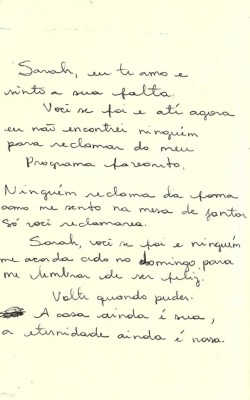 Sarah, eu ti amo e
sinto a sua falta.
Você se foi e até agora
eu não encontrei ninguém
para reclamar do meu
Programa favorito.
Ninguém reclama da forma
como me sento na mesa de jantar
Só você reclamarea.
Sarah, você se foi e ninguém
me acorda cedo no domingo para
me lembrar de ser feliz.
Volte quando puder.
A casa ainda é sua,
a eternidade ainda é nossa.